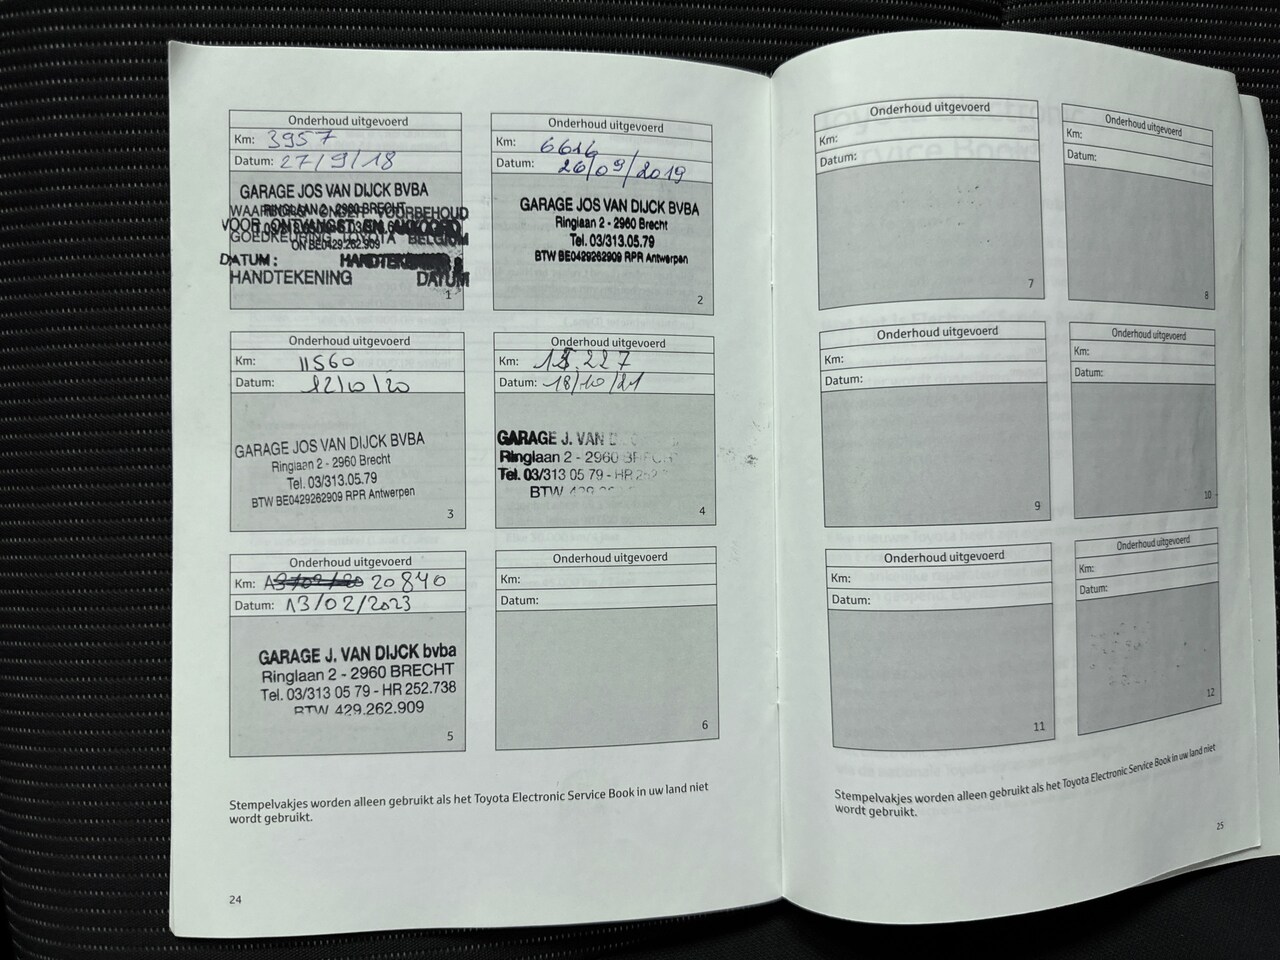 Onderhoud uitgevoerd
Km: 3957
Datum: 27/9/18
GARAGE JOS VAN DIJCK BVBA
RINGLAAN 2 - 2960 BRECHT
WAARBORG ONDER VOORBEHOUD
VOOR ONTVANGST EN AKKOORD
GOEDKEURING TOYOTA BELGIUM
ON BE0429.262.909
DATUM:
HANDTEKENING DATUM
1
Onderhoud uitgevoerd
Km: 6616
Datum: 26/09/2019
GARAGE JOS VAN DIJCK BVBA
Ringlaan 2 - 2960 Brecht
Tel. 03/313.05.79
BTW BE0429262909 RPR Antwerpen
2
Onderhoud uitgevoerd
Km: 11560
Datum: 12/10/20
GARAGE JOS VAN DIJCK BVBA
Ringlaan 2 - 2960 Brecht
Tel. 03/313.05.79
BTW BE0429262909 RPR Antwerpen
3
Onderhoud uitgevoerd
Km: 15.227
Datum: 18/10/21
GARAGE J. VAN D
Ringlaan 2 - 2960 BRECH
Tel. 03/313 05 79 - HR 252
BTW
4
Onderhoud uitgevoerd
Km: 20840
Datum: 13/02/2023
GARAGE J. VAN DIJCK bvba
Ringlaan 2 - 2960 BRECHT
Tel. 03/313 05 79 - HR 252.738
BTW 429.262.909
5
Onderhoud uitgevoerd
Km:
Datum:
6
Stempelvakjes worden alleen gebruikt als het Toyota Electronic Service Book in uw land niet
wordt gebruikt.
24
Onderhoud uitgevoerd
Km:
Datum:
7
Onderhoud uitgevoerd
Km:
Datum:
8
Onderhoud uitgevoerd
Km:
Datum:
9
Onderhoud uitgevoerd
Km:
Datum:
10
Onderhoud uitgevoerd
Km:
Datum:
11
Onderhoud uitgevoerd
Km:
Datum:
12
Stempelvakjes worden alleen gebruikt als het Toyota Electronic Service Book in uw land niet
wordt gebruikt.
25